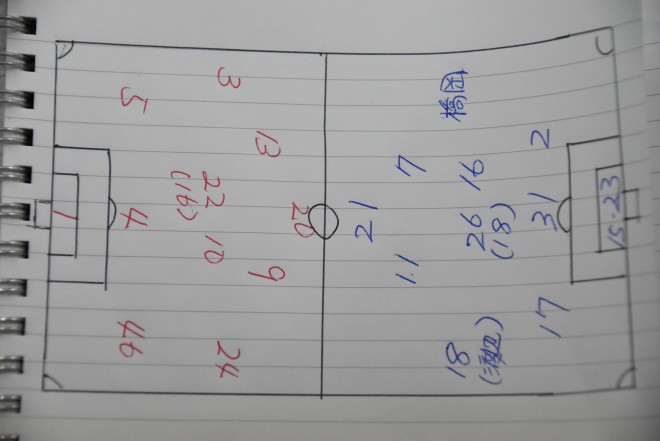 20
13 9
3 22 10 24
(16)
5 4 46
1
21
11 7
18 26 16 橋岡
(18)
17 31 2
15・23